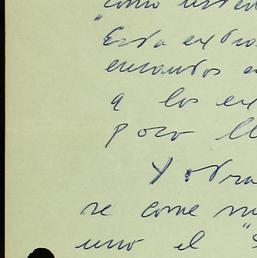 como usted
"Esta extra
encantos e
a los ex
poco ll
Y otra
se come mu
uno el "S